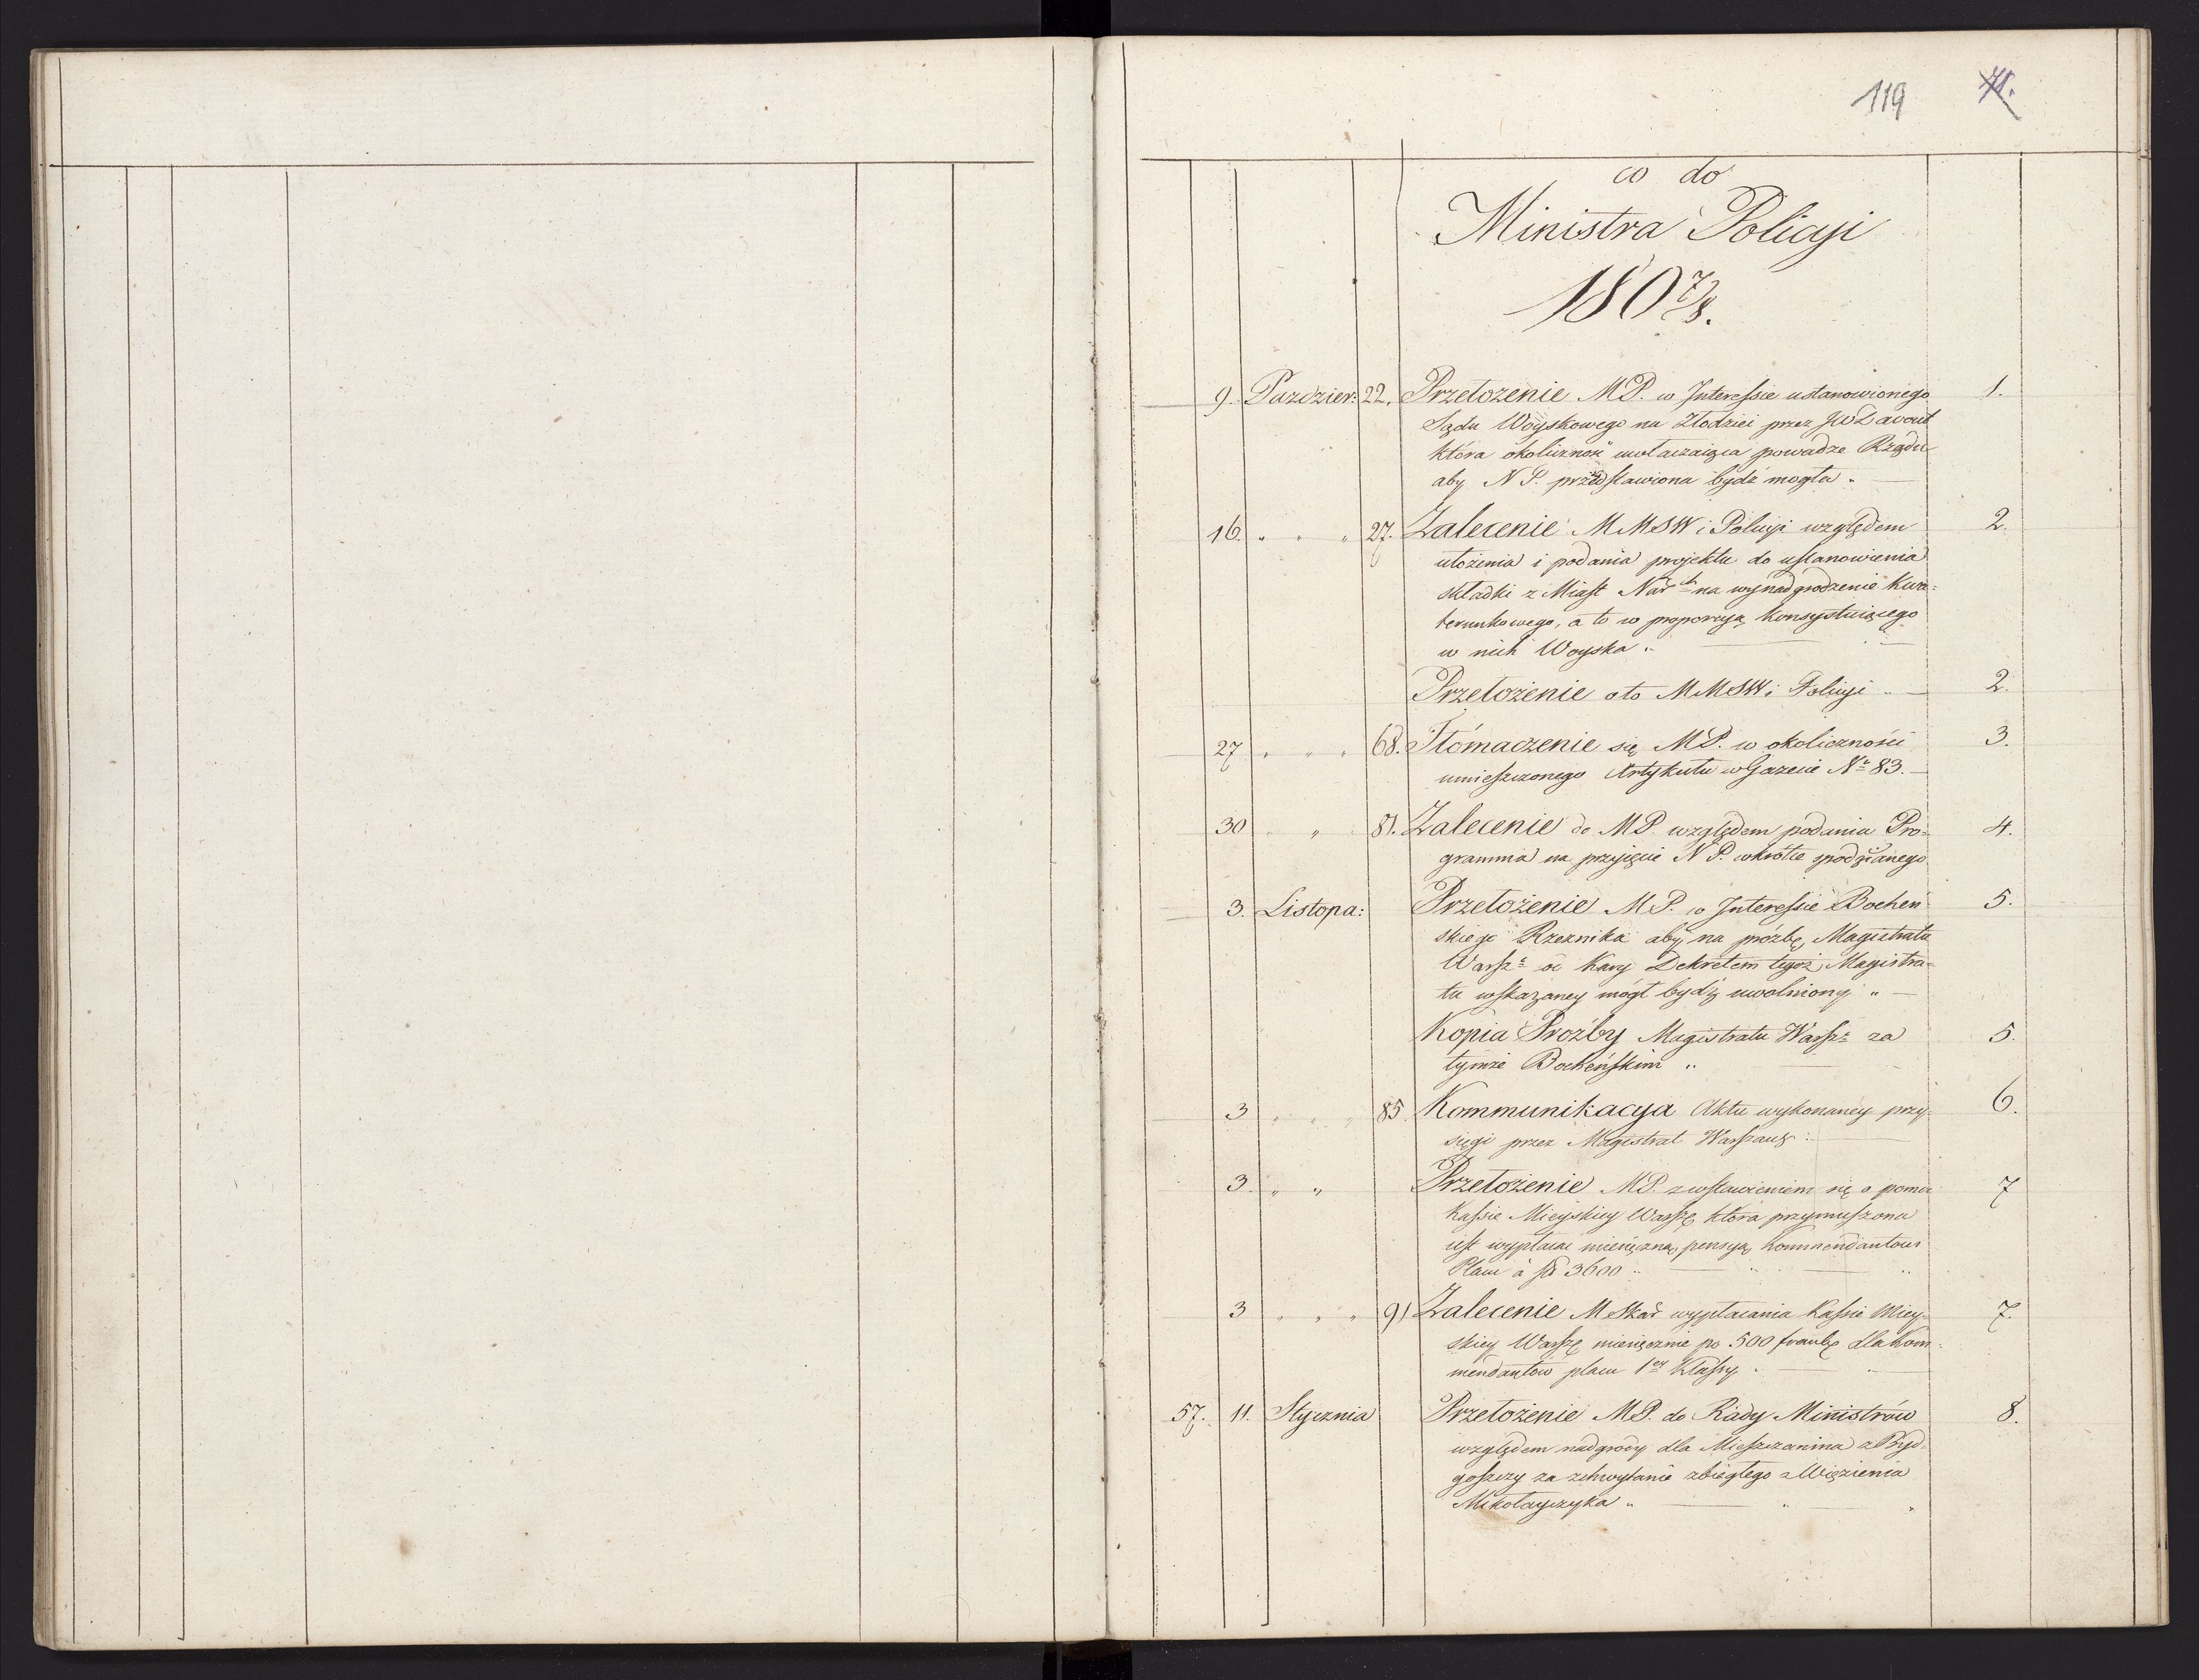 119 71.
co do
Ministra Policyi
180 7/8.
9. Pazdzier: 22. Przełożenie MP. w Interessie ustanowionego 1.
Sądu Woyskowego na Złodziei przez JW Davout
która okoliczność uwłaczaiąca powadze Rządu
aby N P. przedstawiona bydź mogła „
16. „ „ „ 27. Zalecenie M MSW i Policyi względem 2.
ułożenia i podania projektu do ustanowienia
składki z Miast Nar na wynadgrodzenie Kwa=
terunkowego, a to w proporcyą konsystuiącego
w nich Woyska „
Przełożenie oto MMSW i Policyi „ 2.
27 „ „ „ 68. Tłómaczenie się MP. w okoliczności 3.
umieszczonego Artykułu w Gazecie Nr 83.
30 „ 81. Zalecenie do MP. względem podania Pro= 4.
gramma na przyięcie N P. wkrótce spodzianego
3. Listopa: Przełożenie MP. w Interessie Bocheń 5.
skiego Rzeznika aby na prózbę Magistratu
Warsz: od Kary Dekretem tegoż Magistra=
tu wskazaney mógł bydź uwolniony „
Kopia Prozby Magistratu Warsz: za 5.
tymże Bocheńskim „
3 „ „ „ 85. Kommunikacya Aktu wykonaney przy- 6.
sięgi przez Magistrat Warszaws:
3. „ „ Przełożenie MP. z wstawieniem się o pomoc 7
Kassie Mieyskiey Warsz: która przymuszona
iest wypłacać miesięczną pensyą Kommendantowi
Placu à 3600 „
3 „ „ „ 91 Zalecenie M Skar wypłacania Kassie Miey- 7.
skiey Warsz: miesięcznie po 500 frank: dla Kom-
mendantów placu 1ey Klassy „
57. 11. Stycznia Przełożenie MP. do Rady Ministrów 8.
względem nadgrody dla Mieszczanina z Byd-
goszczy za schwytanie zbiegłego z Więzienia
Mikołayczyka „